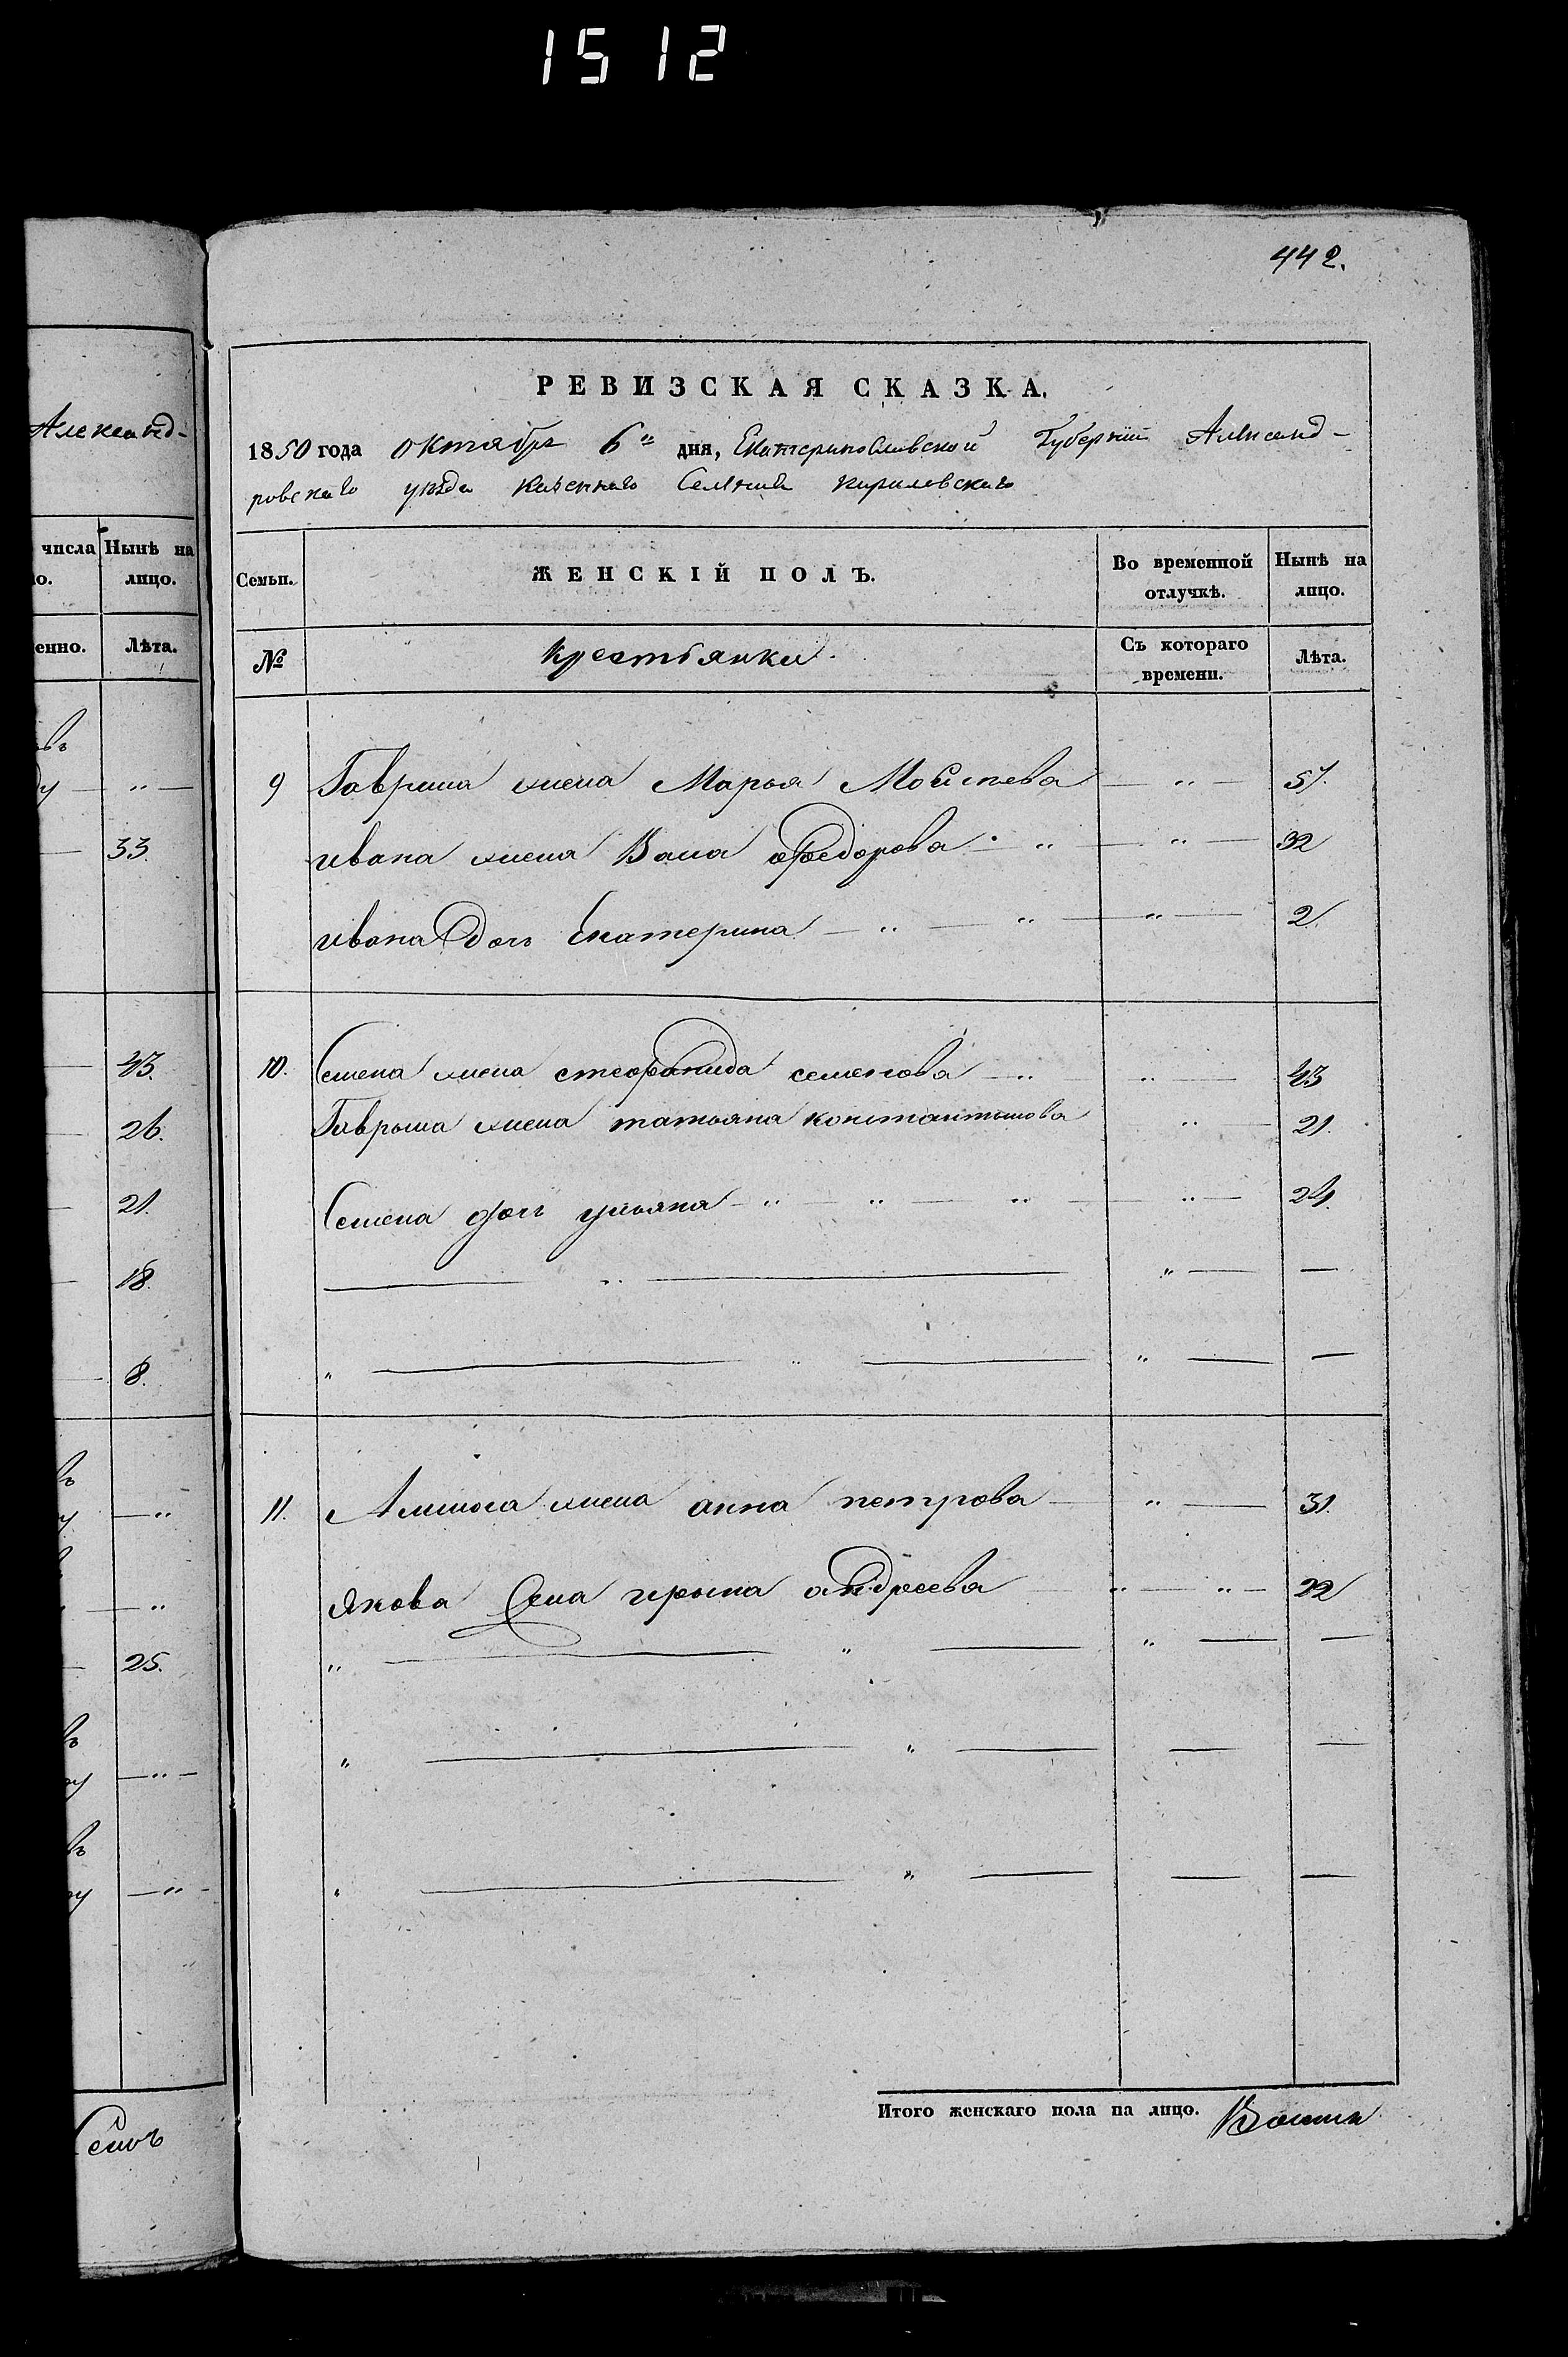 1512
442.
Александ-
числа Нынѣ на
ло. лицо.
енно. Лѣта.
33.
43.
26.
21.
18.
8.
25.
Семь
РЕВИЗСКАЯ СКАЗКА.
1850 года октября 6 дня, Екатеринославской Губернии Александ-
ровскаго уѣзда казеннаго Селения кириловскаго
Семьи. ЖЕНСКІЙ ПОЛЪ. Во временной отлучкѣ. Нынѣ на лицо.
№ крестьянки. Съ котораго времени. Лѣта.
9 Гаврила жена Марья Моисеева 57.
ивана жена Васа Федорова 32
ивана дочь Екатерина 2.
10. Семена жена стефанида семенова 43
Гаврыла жена татьяна константинова 21.
Семена дочь ульяна 24.
11. жена анна петрова 31.
Якова жена ирына андреева 22
Итого женскаго пола на лицо. Восемь